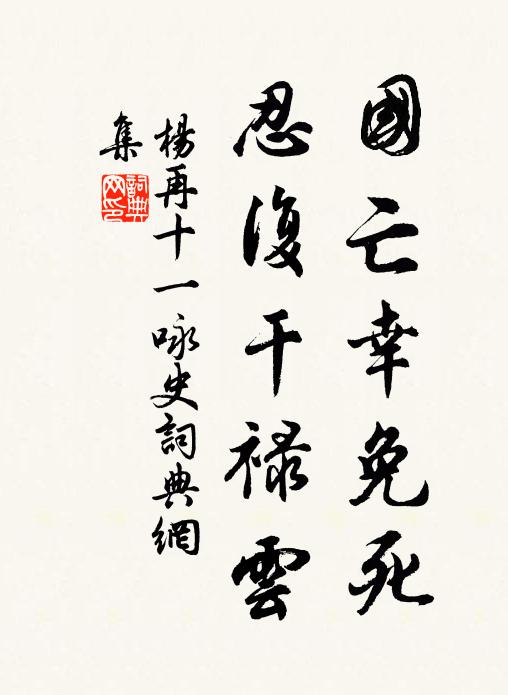 國亡幸免死
忍復干祿雲
楊再十一咏史詞典網
集
詞典
网印